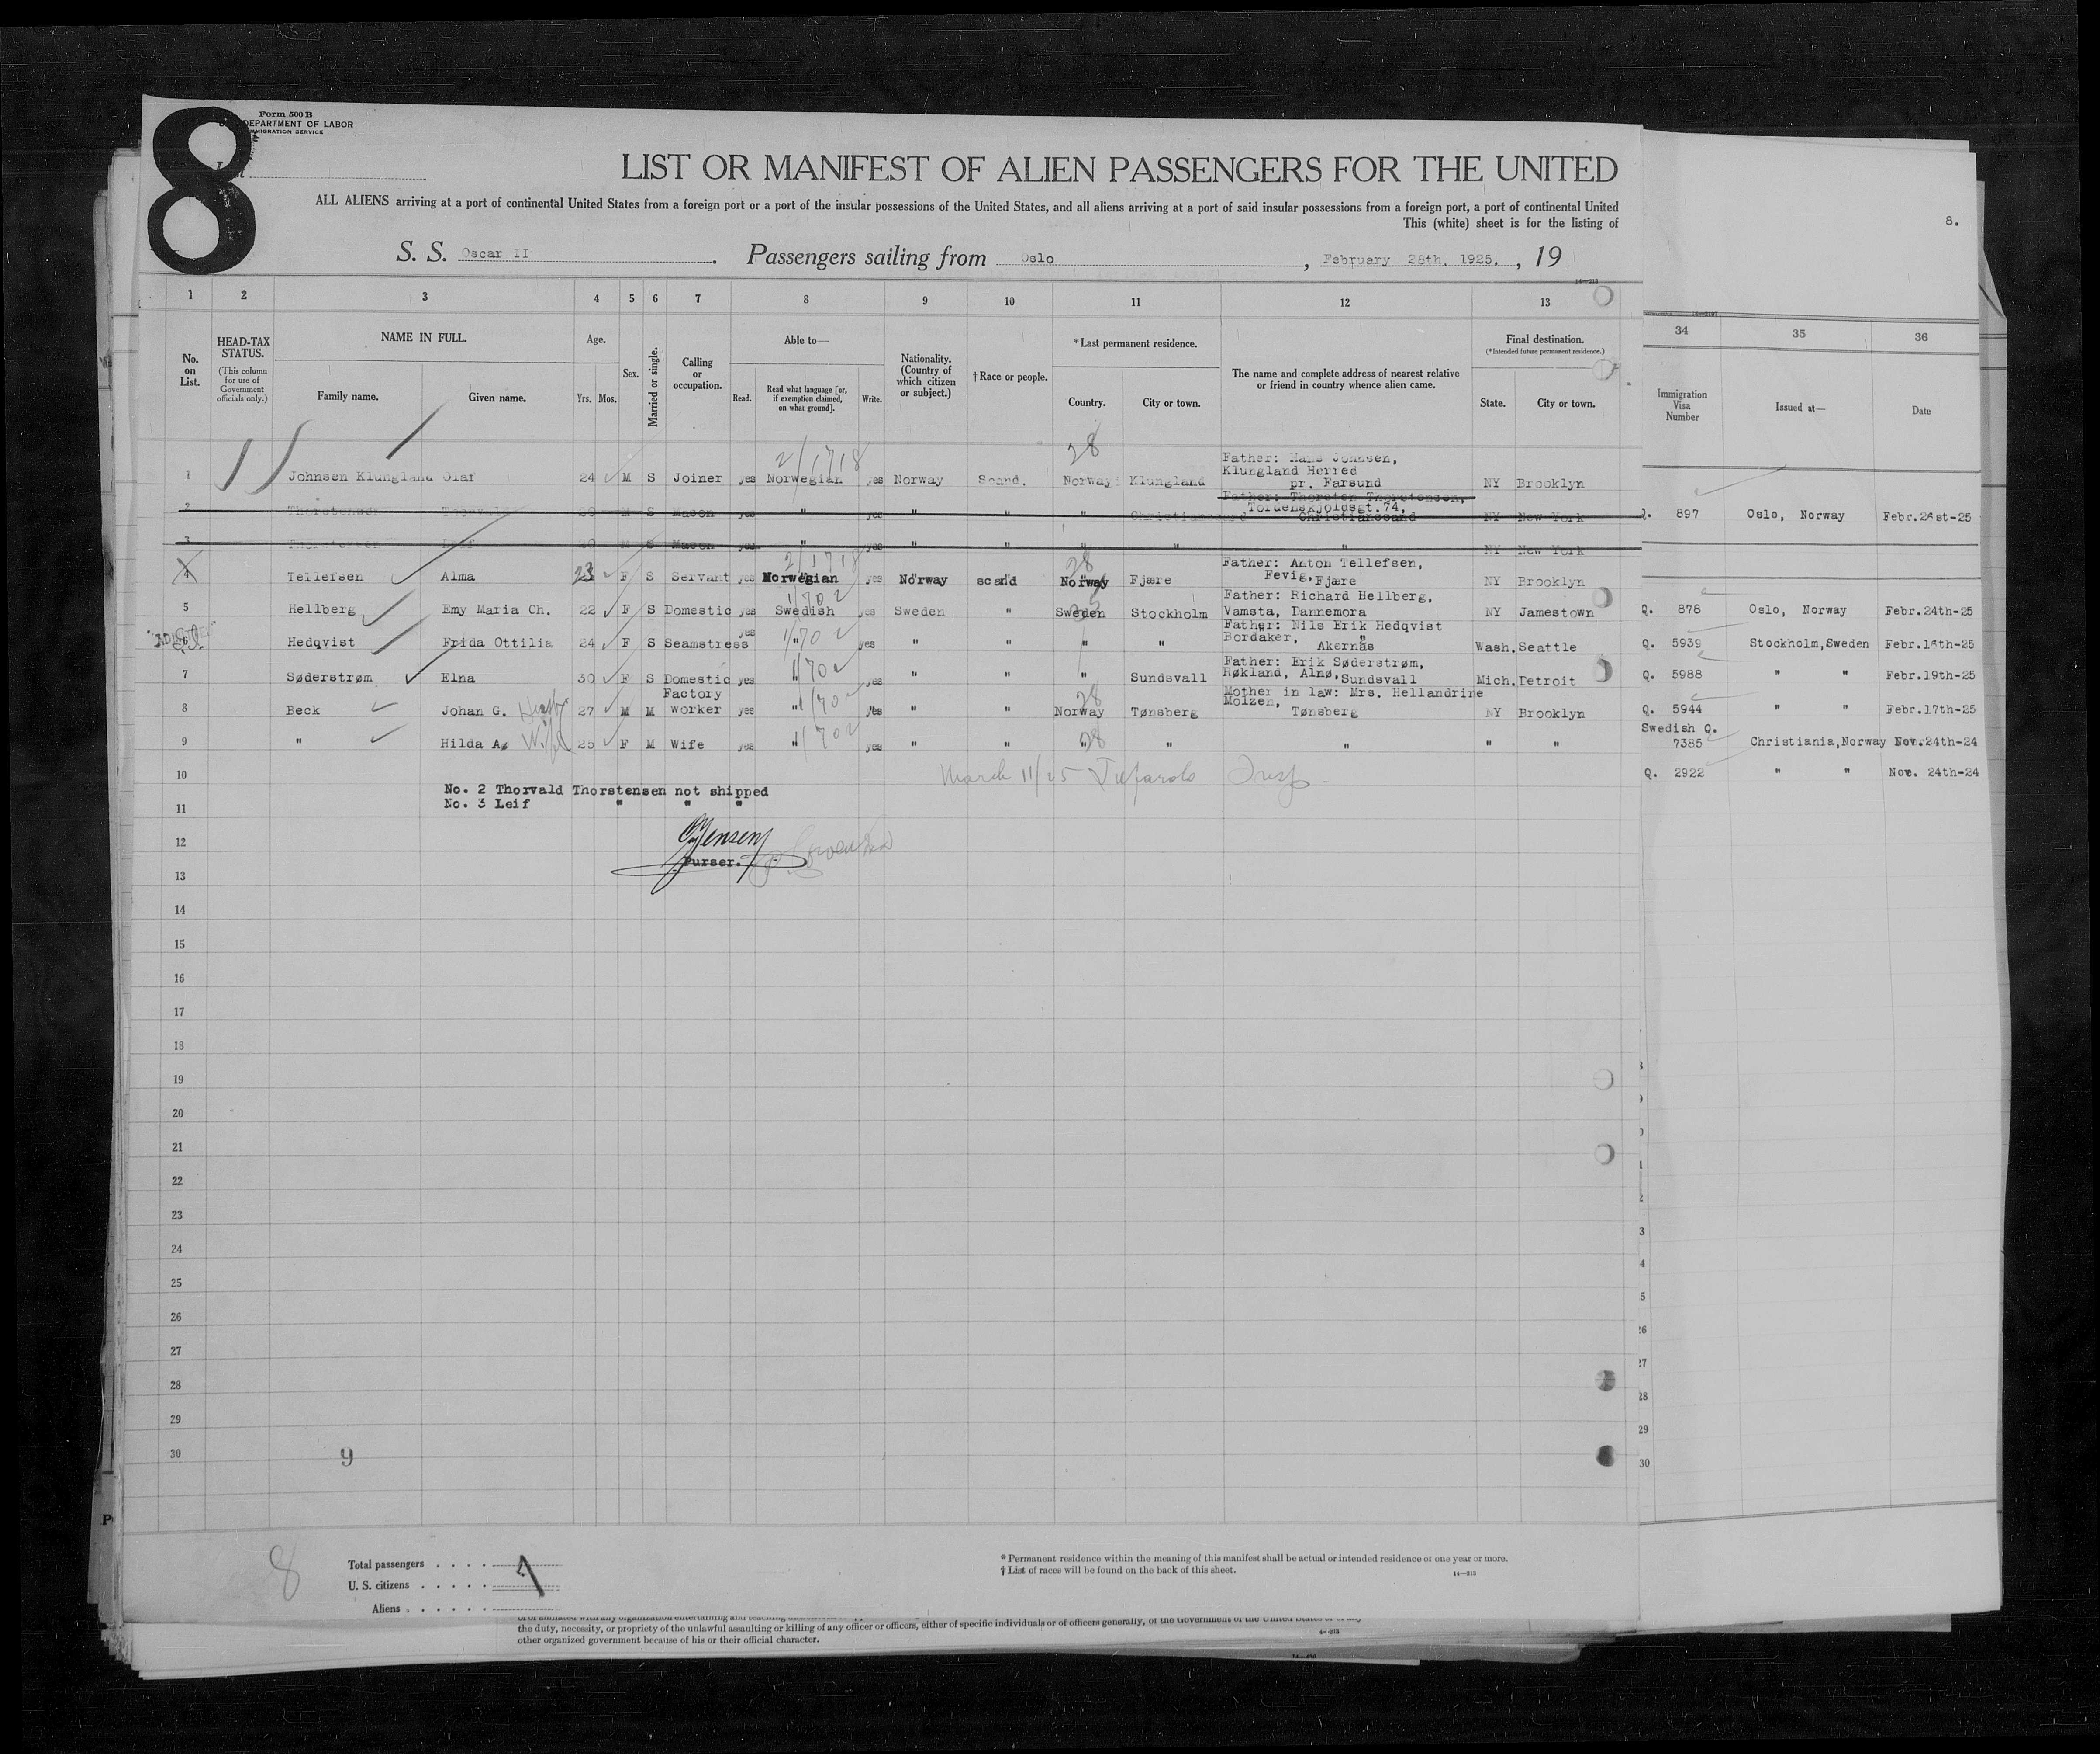 8
Form 500 B
DEPARTMENT OF LABOR
IMMIGRATION SERVICE
LIST OR MANIFEST OF ALIEN PASSENGERS FOR THE UNITED
ALL ALIENS arriving at a port of continental United States from a foreign port or a port of the insular possessions of the United States, and all aliens arriving at a port of said insular possessions from a foreign port, a port of continental United
This (white) sheet is for the listing of
8.
S. S. Oscar II. Passengers sailing from Oslo, February 28th, 1925., 19
14—213
1 2 3 4 5 6 7 8 9 10 11 12 13 34 35 36
No. on List. HEAD-TAX STATUS. (This column for use of Government officials only.) NAME IN FULL. Family name. Given name. Age. Yrs. Mos. Sex. Married or single. Calling or occupation. Able to— Read. Read what language [or, if exemption claimed, on what ground]. Write. Nationality. (Country of which citizen or subject.) †Race or people. *Last permanent residence. Country. City or town. The name and complete address of nearest relative or friend in country whence alien came. Final destination. (*Intended future permanent residence.) State. City or town. Immigration Visa Number Issued at— Date
2/1718 28
1 Johnsen Klungland Olaf 24 M S Joiner yes Norwegian yes Norway Scand. Norway Klungland Father: Hans Johnsen, Klungland Herred pr. Farsund NY Brooklyn
2 Thorstensen Thorvald 20 M S Mason yes " yes " " " Christianssand Father: Thorsten Thorstensen, Tordenskjoldsgt.74, Christianssand NY New York
897 Oslo, Norway Febr.26st-25
3 Thorstensen Leif 20 M S Mason yes " yes " " " " " NY New York
2/1718 28
4 Tellefsen Alma 23 F S Servant yes Norwegian yes Norway scand Norway Fjære Father: Anton Tellefsen, Fevig, Fjære NY Brooklyn
1/702
5 Hellberg Emy Maria Ch. 22 F S Domestic yes Swedish yes Sweden " Sweden Stockholm Father: Richard Hellberg, Vamsta, Dannemora NY Jamestown
Q. 878 Oslo, Norway Febr.24th-25
1/702
6 Hedqvist Frida Ottilia 24 F S Seamstress yes " yes " " " " Father: Nils Erik Hedqvist Bordaker, Akernäs Wash. Seattle
Q. 5939 Stockholm,Sweden Febr.18th-25
1/702
7 Søderstrøm Elna 30 F S Domestic yes " yes " " " Sundsvall Father: Erik Søderstrøm, Røkland, Alnø, Sundsvall Mich. Detroit
Q. 5988 " " Febr.19th-25
1/702 28
8 Beck Johan G. 27 M M Factory worker yes " yes " " Norway Tønsberg Mother in law: Mrs. Hellandrine Molzen, Tønsberg NY Brooklyn
Q. 5944 " " Febr.17th-25
1/702 28
9 " Hilda A. Wife 25 F M Wife yes " yes " " " " " " "
Swedish Q.
7385 Christiania,Norway Nov.24th-24
10
March 11/25
Q. 2922 " " Nov. 24th-24
No. 2 Thorvald Thorstensen not shipped
No. 3 Leif " " "
11
12
Jensen
Purser.
13
14
15
16
17
18
19
20
21
22
23
24
25
26
27
28
29
30
9
8
Total passengers
7
U. S. citizens
Aliens
* Permanent residence within the meaning of this manifest shall be actual or intended residence of one year or more.
† List of races will be found on the back of this sheet.
14—213
the duty, necessity, or propriety of the unlawful assaulting or killing of any officer or officers, either of specific individuals or of officers generally, of the Government of the United States or of any
other organized government because of his or their official character.